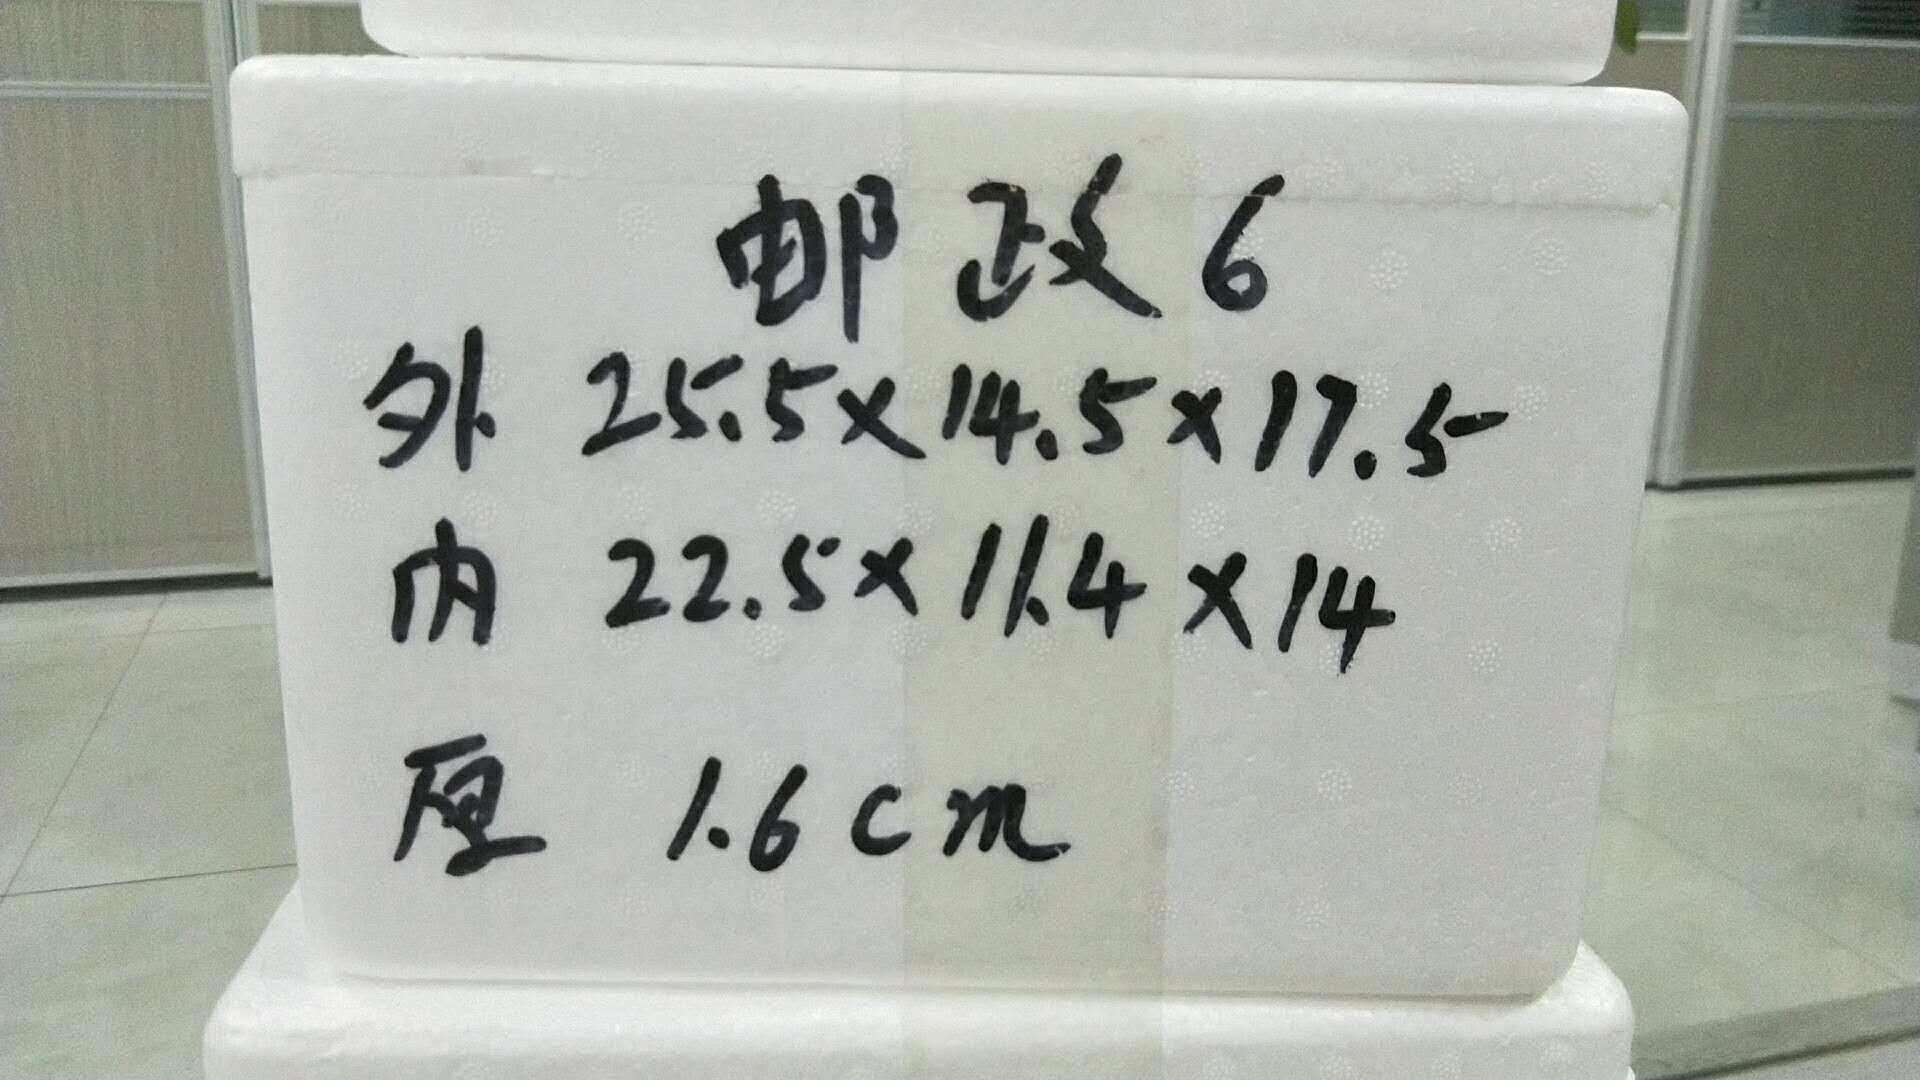 邮政6
外 25.5×14.5×17.5
内 22.5×11.4×14
厚 1.6cm